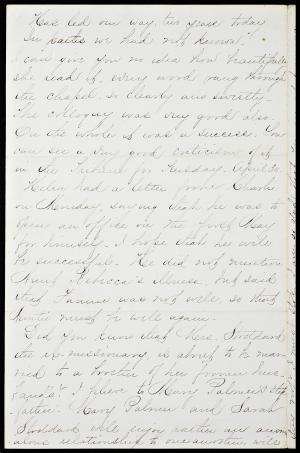 Has led our way, two years today
In paths we had not known."
I can give you no idea how beautifully
she read it. Every word rang through
the chapel, so clearly and sweetly.
The colloquy was very good also.
On the whole it was a success. You
can see a very good criticism of it
in the Tribune for Tuesday, April 30.
Helen had a letter from Charlie
on Monday, saying that he was to
open an office on the first May
for himself. I hope that he will
be successful. He did not mention
Aunt Rebecca's illness, but said
that Fannie was not well, so that
Auntie must be well again.
Did you know that Mrs. Stoddard
the ex-missionary, is about to be mar-
ried to a brother of her former hus-
band's? I
to Mary Palmer's step
father. Mary Palmer and Sarah
Stoddard will enjoy rather an anom-
alous relationship to one another will